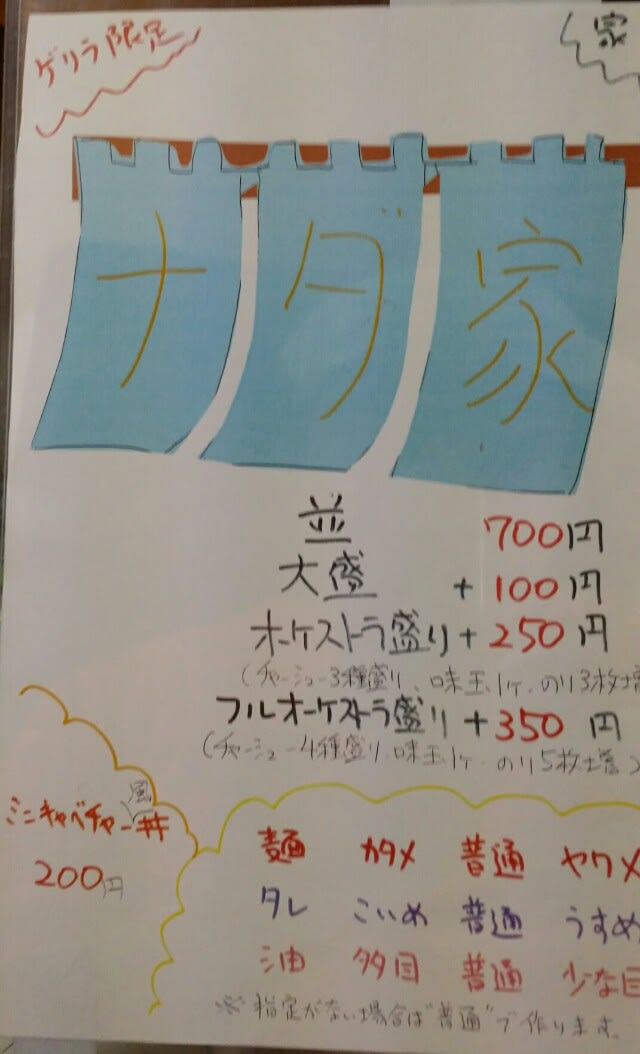 ゲリラ限定
家
ナダ家
並 700円
大盛 +100円
オーケストラ盛り+250円
(チャーシュー3種盛り、味玉1ヶ、のり3枚増
フルオーケストラ盛り+350円
(チャーシュー4種盛り、味玉1ヶ、のり5枚増)
ミニキャベチャー風丼
200円
麺 カタメ 普通 ヤワメ
タレ こいめ 普通 うすめ
油 多目 普通 少な目
※指定がない場合は"普通"で作ります。